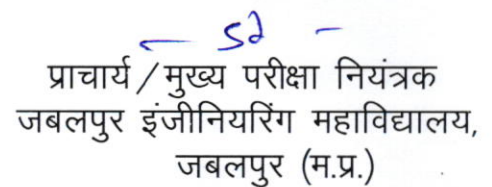 — Sd —
प्राचार्य/मुख्य परीक्षा नियंत्रक
जबलपुर इंजीनियरिंग महाविद्यालय,
जबलपुर (म.प्र.)